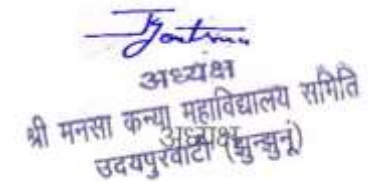 अध्यक्ष
श्री मनसा कन्या महाविद्यालय समिति
अध्यक्ष
उदयपुरवाटी (झुन्झुनू)